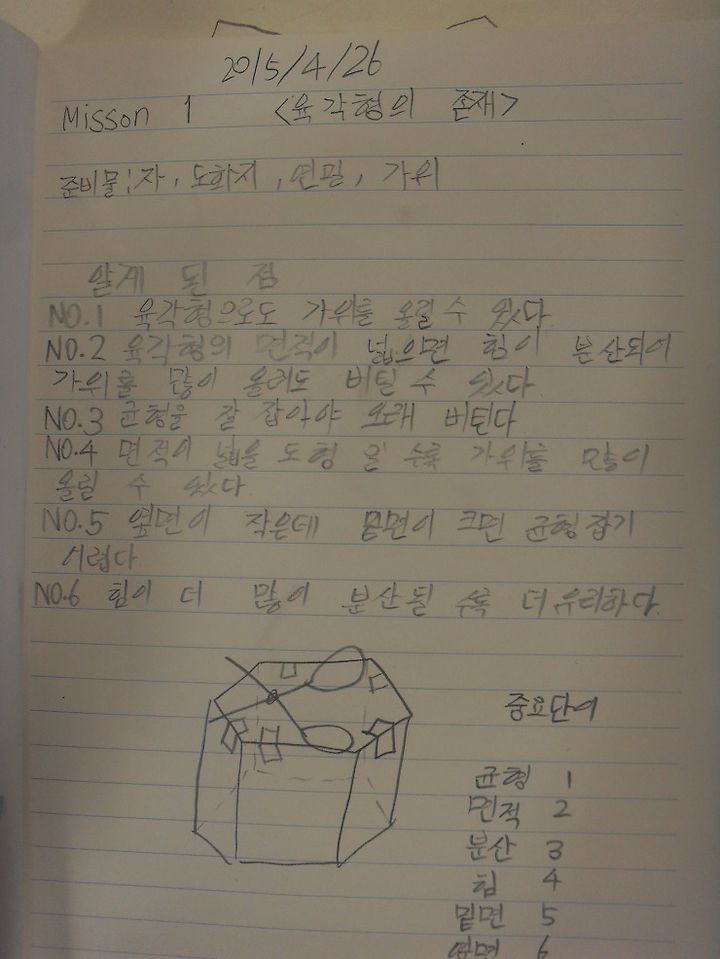 2015/4/26
Misson 1 <육각형의 존재>
준비물; 자, 도화지, 연필, 가위
알게 된 점
NO.1 육각형으로도 가위를 올릴 수 있다
NO.2 육각형의 면적이 넓으면 힘이 분산되어
가위를 많이 올려도 버틸 수 있다
NO.3 균형을 잘 잡아야 오래 버틴다
NO.4 면적이 넓을 도형 일 수록 가위를 많이
올릴 수 있다
NO.5 옆면이 작은데 밑면이 크면 균형잡기
어렵다
NO.6 힘이 더 많이 분산될 수록 더 유리하다.
중요단어
균형 1
면적 2
분산 3
힘 4
밑면 5
옆면 6